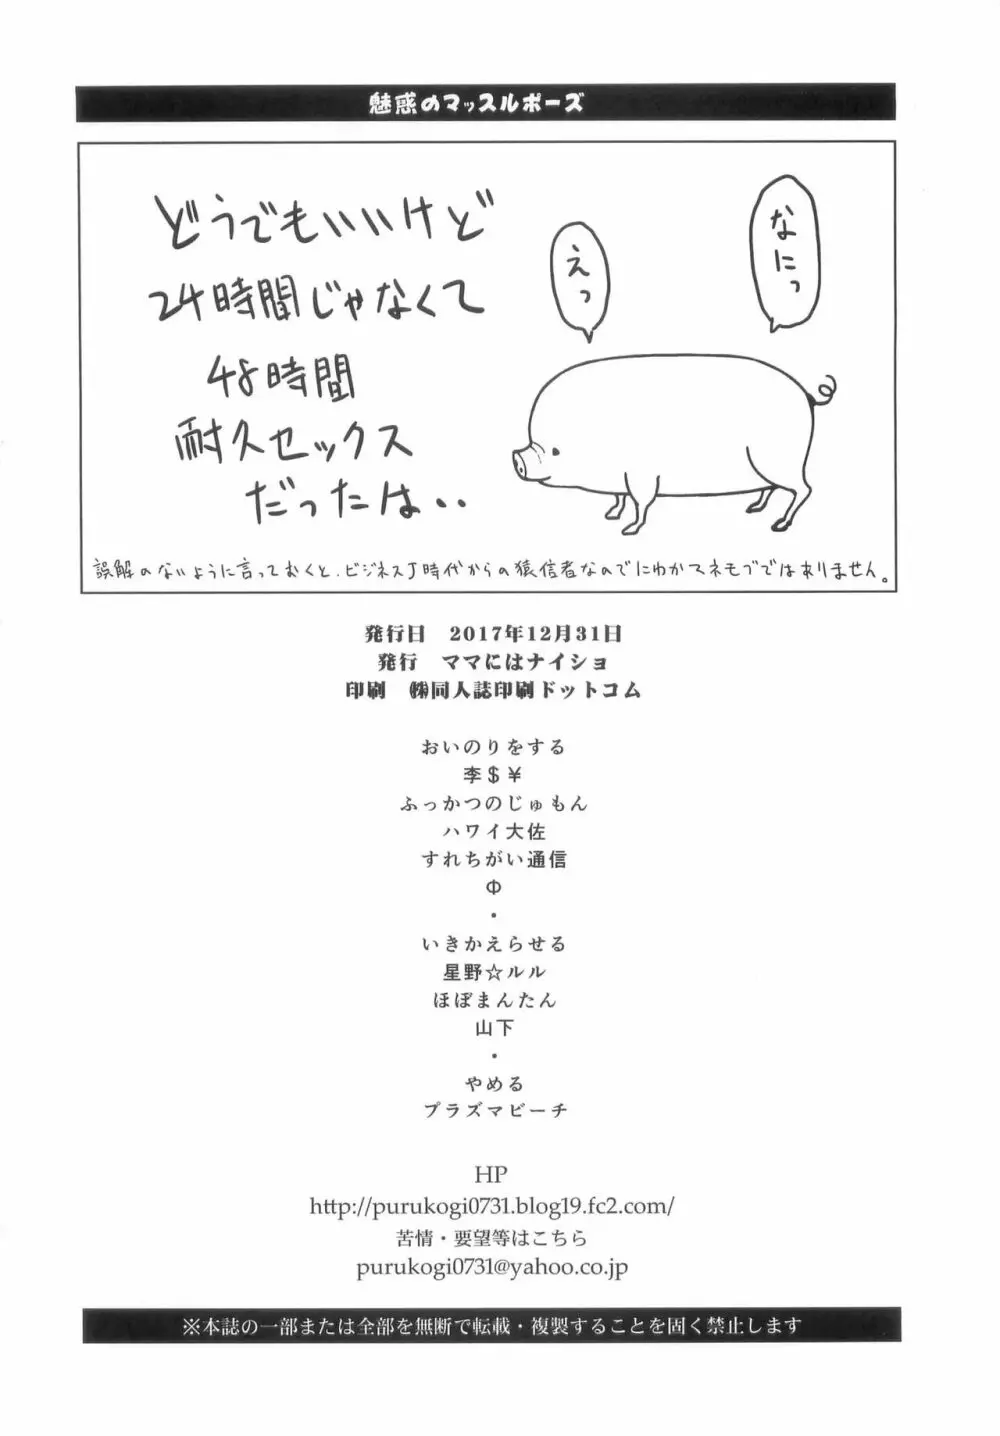 魅惑のマッスルポーズ
どうでもいいけど
24時間じゃなくて
48時間
耐久セックス
だったは・・
えっ
なにっ
誤解のないように言っておくと、ビジネスJ時代からの猿信者なのでにわかマネモブではありません。
発行日　2017年12月31日
発行　ママにはナイショ
印刷　㈱同人誌印刷ドットコム
おいのりをする
李＄￥
ふっかつのじゅもん
ハワイ大佐
すれちがい通信
Φ
・
いきかえらせる
星野☆ルル
ほぼまんたん
山下
・
やめる
プラズマビーチ
HP
http://purukogi0731.blog19.fc2.com/
苦情・要望等はこちら
purukogi0731@yahoo.co.jp
※本誌の一部または全部を無断で転載・複製することを固く禁止します